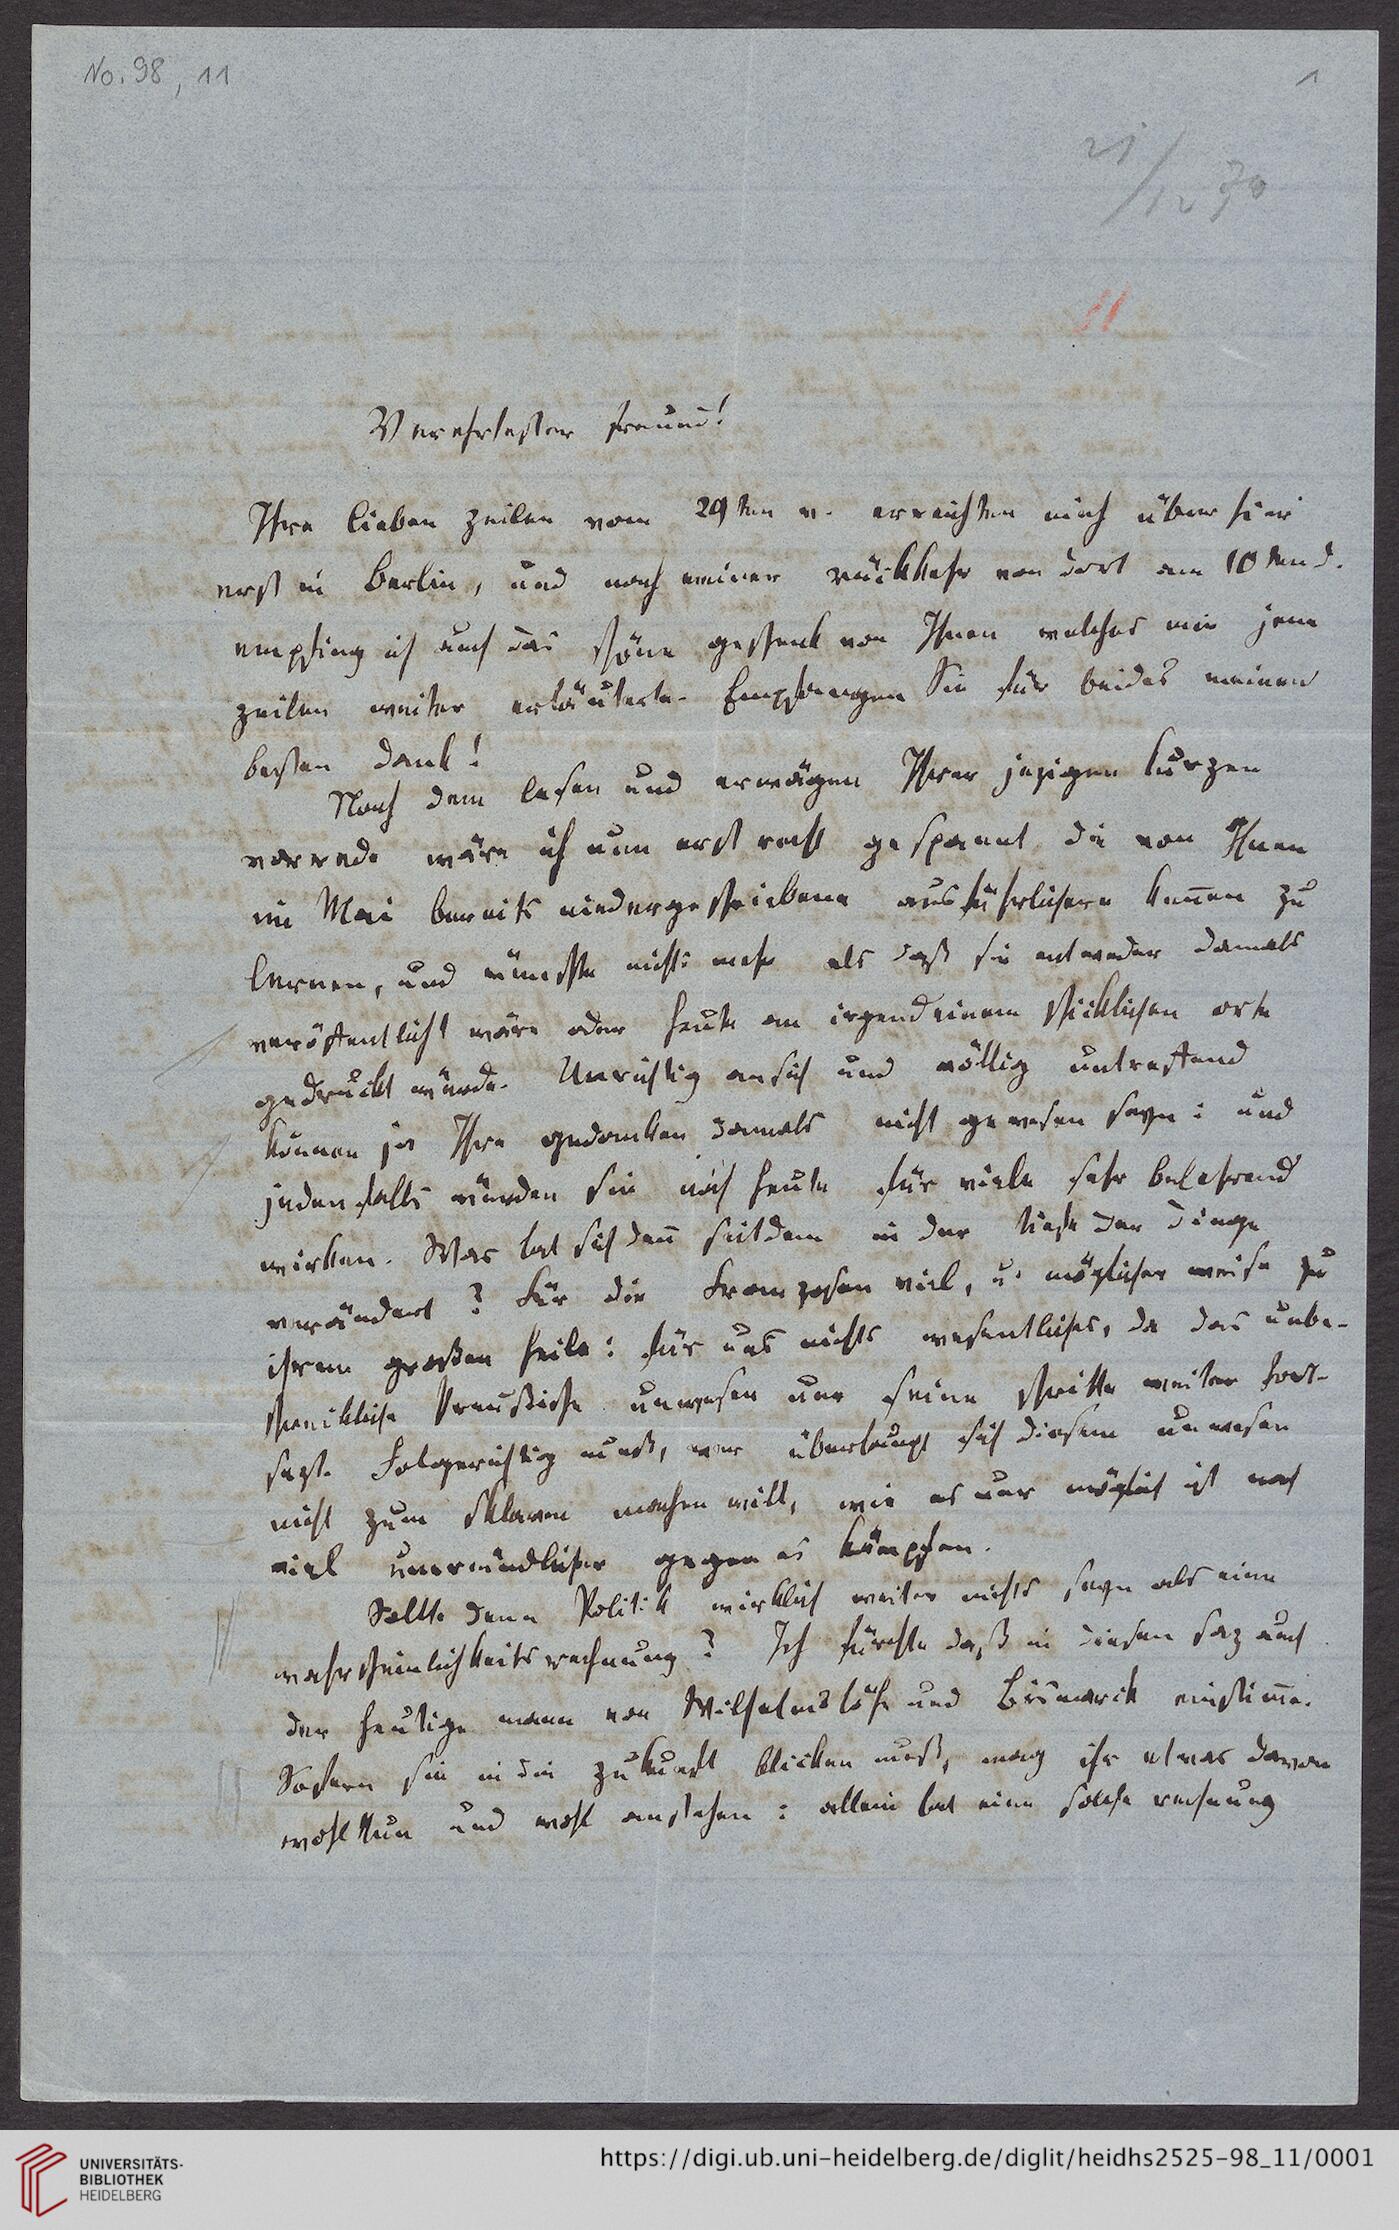 No. 98, 11
1
21/12 70
11
Verehrtester freund!
Ihre lieben zeilen vom 29ten v. erreichten mich über hier
erst in Berlin, und nach meiner rückkehr von dort am 10ten d.
empfing ich auch das schöne geschenk von Ihnen welches mir jene
zeilen weiter erläuterte. Empfangen Sie für beides meinen
besten dank!
Nach dem lesen und erwägen Ihrer jezigen kurzen
vorrede wäre ich nun erst recht gespannt die von Ihnen
im Mai bereits niedergeschriebene ausführlichere kennen zu
lernen, und wünschte nichts mehr als daß sie entweder damals
veröffentlicht wäre oder heute an irgendeinem schicklichen orte
gedruckt würde. Unrichtig ansich und völlig untreffend
können ja Ihre gedanken damals nicht gewesen seyn: und
jedenfalls würden sie noch heute für viele sehr belehrend
wirken. Was hat sich denn seitdem in der tiefe der dinge
verändert? Für die Franzosen viel, u. möglicher weise zu
ihrem großen heile: für uns nichts wesentliches, da das unbe-
schreibliche Preußische unwesen nur seine schritte weiter fort-
sezt. Folgerichtig muß, wer überhaupt sich diesem unwesen
nicht zum sklaven machen will, wie es nur möglich ist noch
viel unermüdlicher gegen es kämpfen.
Sollte denn Politik wirklich weiter nichts seyn als eine
wahrscheinlichkeitsrechnung? Ich fürchte daß in diesen saz auch
der heutige mann von Wilhelmshöhe und Bismarck einstimme.
Sofern sie in die zukunft blicken muß, mag ihr etwas davon
wohlthun und wohl anstehen: allein hat eine solche rechnung
UNIVERSITÄTS-
BIBLIOTHEK
HEIDELBERG
https://digi.ub.uni-heidelberg.de/diglit/heidhs2525-98_11/0001